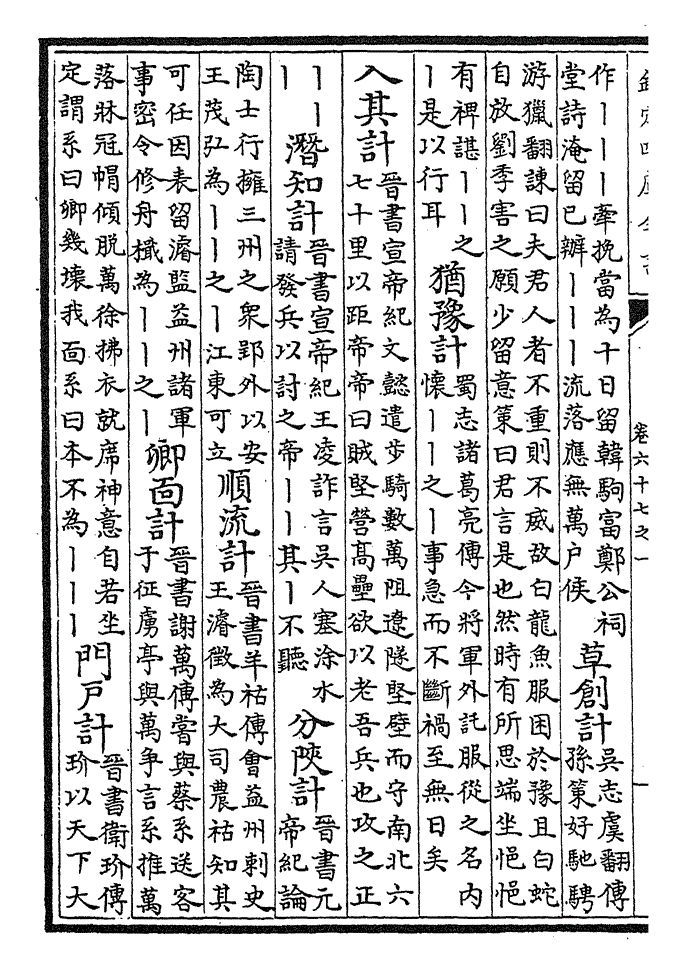 欽定四庫全書
卷六十七之一
作丨丨丨牽挽當為十日留韓駒富鄭公祠
堂詩淹留已辦丨丨丨流落應無萬户侯
草創計
吳志虞翻傳
孫策好馳騁
游獵翻諫曰夫君人者不重則不威故白龍魚服困於豫且白蛇
自放劉季害之願少留意策曰君言是也然時有所思端坐悒悒
有裨諶丨丨之
丨是以行耳
猶豫計
蜀志諸葛亮傳今將軍外託服從之名内
懷丨丨之丨事急而不斷禍至無日矣
入其計
晉書宣帝紀文懿遣步騎數萬阻遼隧堅壁而守南北六
七十里以距帝帝曰賊堅營高壘欲以老吾兵也攻之正
丨丨
丨
潛知計
晉書宣帝紀王凌詐言吳人塞涂水
請發兵以討之帝丨丨其丨不聽
分陜計
晉書元
帝紀論
陶士行擁三州之衆郢外以安
王茂弘為丨丨之丨江東可立
順流計
晉書羊祜傳會益州刺史
王濬徵為大司農祜知其
可任因表留濬監益州諸軍
事密令修舟檝為丨丨之丨
卿面計
晉書謝萬傳嘗與蔡系送客
于征虜亭與萬争言系推萬
落牀冠帽傾脱萬徐拂衣就席神意自若坐
定謂系曰卿幾壞我面系曰本不為丨丨丨
門户計
晉書衛玠傳
玠以天下大